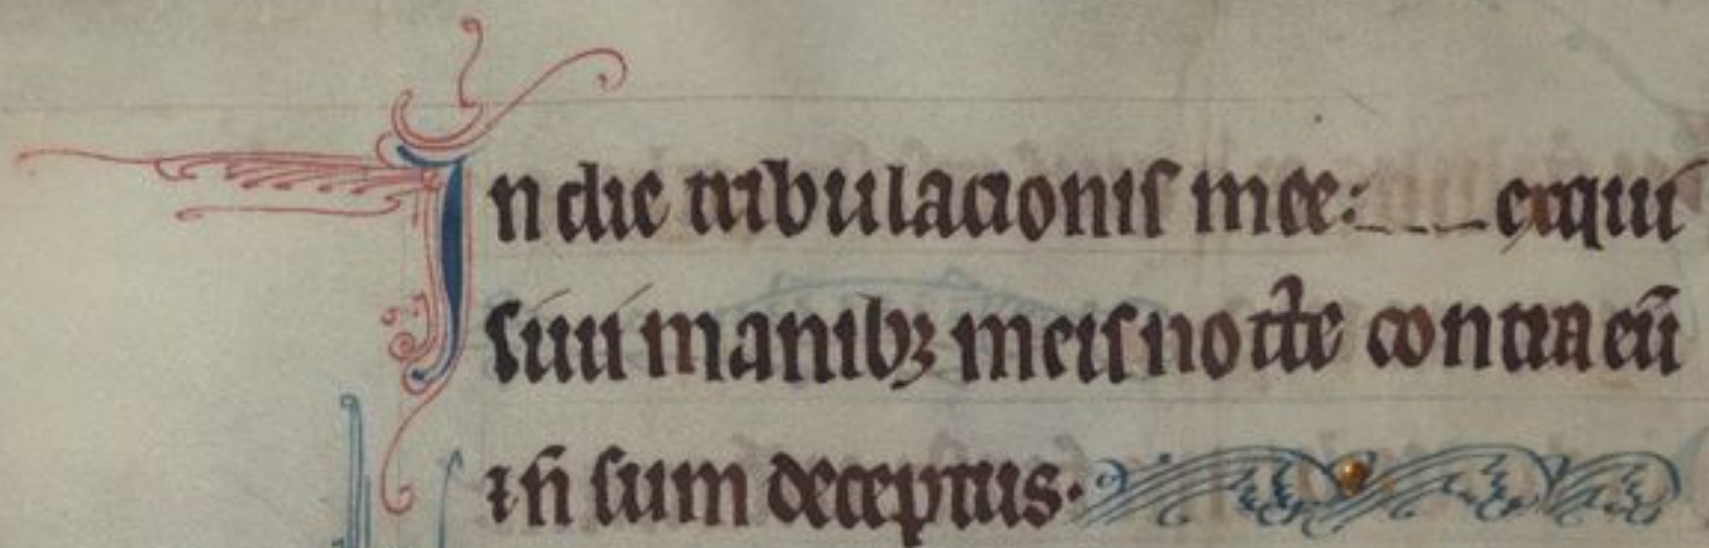 In die tribulacionis mee: exqui
siui manibꝫ meis nocte contra eū
⁊ n̄ sum deceptus.